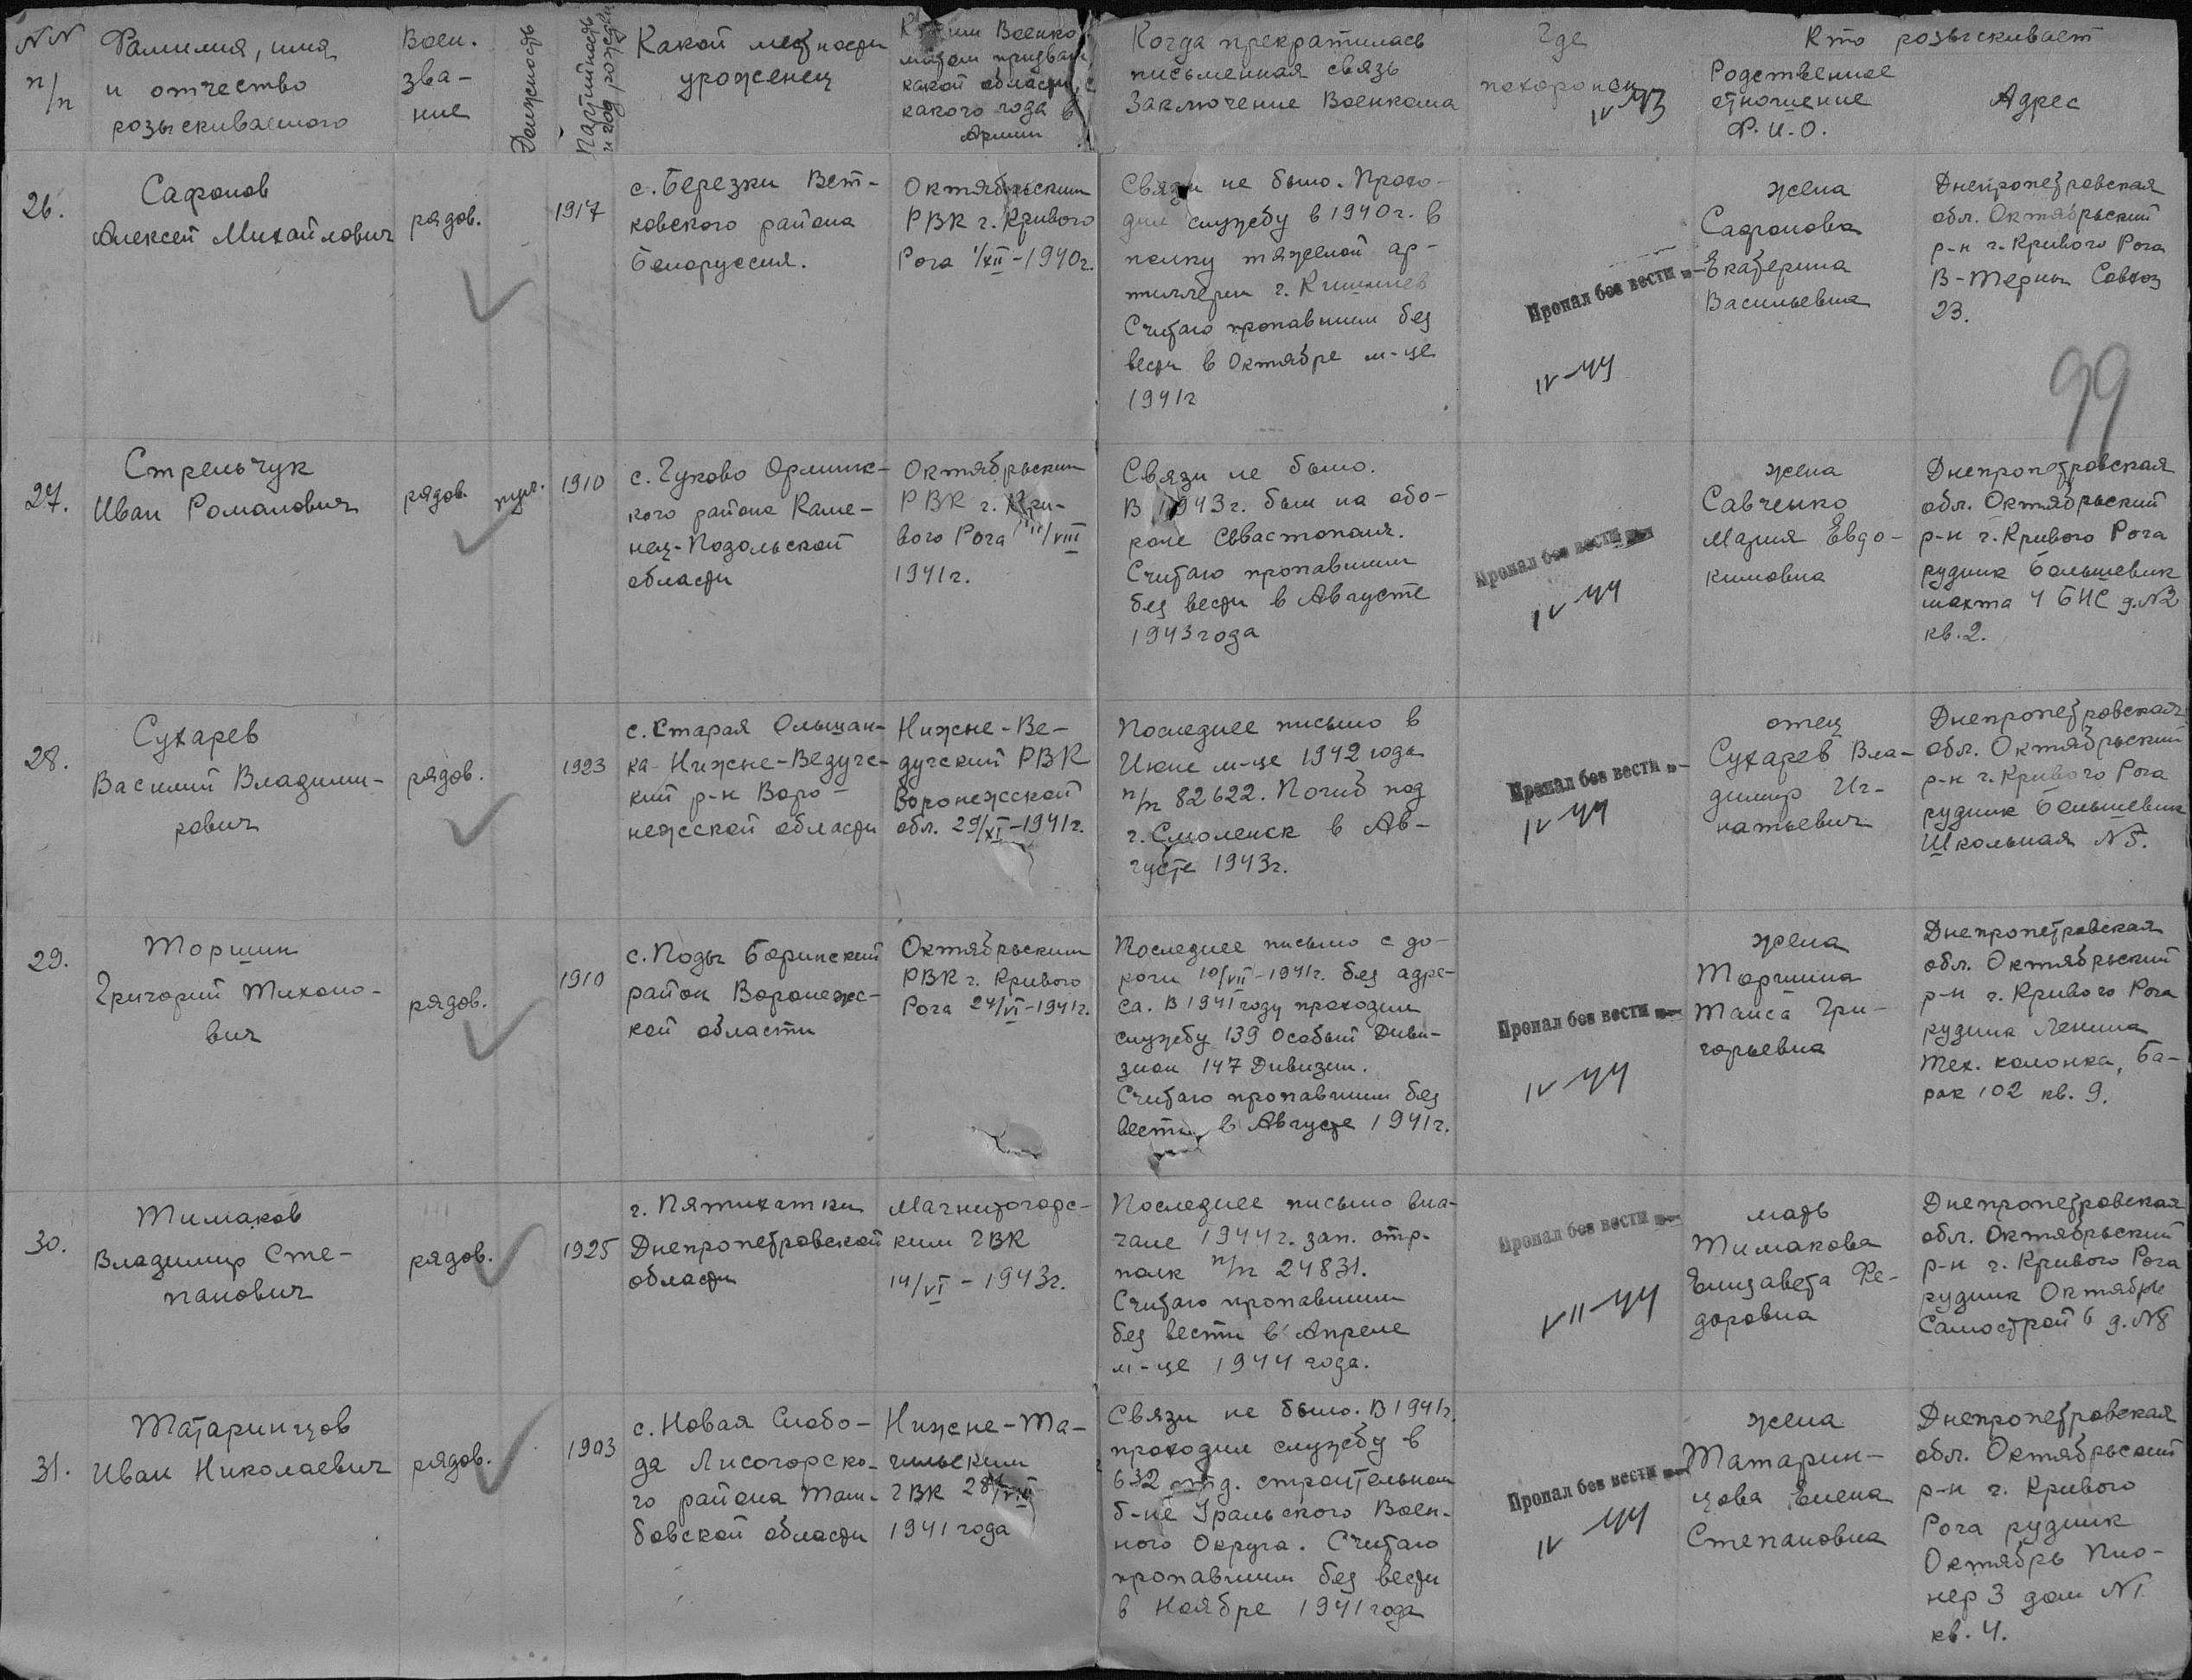 NN
п/п
Фамилия, имя
и отчество
розыскиваемого
Воен.
зва-
ние
Должность
Партийность
и год рожден
Какой местности
уроженец
Военко
матом призван
какой области, с
какого года в
Армии
Когда прекратилась
письменная связь
Заключение Военкома
Где
похоронен
IV-43
Кто розыскивает
Родственное
отношение
Ф.И.О.
Адрес
26.
Сафонов
Алексей Михайлович
рядов.
1917
с. Березки Вет-
ковского района
Белоруссия.
Октябрьским
РВК г. Кривого
Рога 1/XII-1940г.
Связи не было. Прохо-
дил службу в 1940г. в
полку тяжелой ар-
тиллерии г. Кишинев
Считаю пропавшим без
вести в Октябре м-це
1941г
Пропал без вести
IV-44
жена
Сафонова
Екатерина
Васильевна
Днепропетровская
обл. Октябрьский
р-н г. Кривого Рога
В-Терны Совхоз
23.
99
27.
Стрельчук
Иван Романович
рядов.
1910
с. Гуково Орлинс-
кого района Каме-
нец-Подольской
области
Октябрьским
РВК г. Кри-
вого Рога 11/VIII
1941г.
Связи не было.
В 1943г. был на обо-
роне Севастополя.
Считаю пропавшим
без вести в Августе
1943 года
Пропал без вести
IV-44
жена
Савченко
Мария Евдо-
кимовна
Днепропетровская
обл. Октябрьский
р-н г. Кривого Рога
рудник Большевик
шахта 4 БИС д.N2
кв.2.
28.
Сухарев
Василий Владими-
рович
рядов.
1923
с. Старая Ольшан-
ка Нижне-Ведугс-
кий р-н Воро-
нежской области
Нижне-Ве-
дугский РВК
Воронежской
обл. 29/XI-1941г.
Последнее письмо в
Июне м-це 1942 года
п/п 82622. Погиб под
г. Смоленск в Ав-
густе 1943г.
Пропал без вести
IV-44
отец
Сухарев Вла-
димир Иг-
натьевич
Днепропетровская
обл. Октябрьский
р-н г. Кривого Рога
рудник Большевик
Школьная N5.
29.
Торшин
Григорий Тихоно-
вич
рядов.
1910
с. Поды Боринский
район Воронежс-
кой области
Октябрьским
РВК г. Кривого
Рога 24/VI-1941г.
Последнее письмо с до-
роги 10/VII-1941г. без адре-
са. В 1941 году проходил
службу 139 Особый Диви-
зион 147 Дивизии.
Считаю пропавшим без
вести в Августе 1941г.
Пропал без вести
IV-44
жена
Торшина
Таиса Гри-
горьевна
Днепропетровская
обл. Октябрьский
р-н г. Кривого Рога
рудник Ленина
Тех. колонка, Ба-
рак 102 кв. 9.
30.
Тимаков
Владимир Сте-
панович
рядов.
1925
г. Пятихатки
Днепропетровской
области
Магнитогорс-
ким ГВК
14/VI-1943г.
Последнее письмо вна-
чале 1944г. зап. стр.
полк п/п 24831.
Считаю пропавшим
без вести в Апреле
м-це 1944 года.
Пропал без вести
VII-44
мать
Тимакова
Елизавета Фе-
доровна
Днепропетровская
обл. Октябрьский
р-н г. Кривого Рога
рудник Октябрь
Самострой 6 д. N8
31.
Татаринцов
Иван Николаевич
рядов.
1903
с. Новая Слобо-
да Лисогорско-
го района Там-
бовской области
Нижне-Та-
гильским
ГВК 28/VIII
1941 года
Связи не было. В 1941г.
проходил службу в
632 отд. строительном
б-не Уральского Воен-
ного Округа. Считаю
пропавшим без вести
в Ноябре 1941 года
Пропал без вести
IV-44
жена
Татарин-
цова Елена
Степановна
Днепропетровская
обл. Октябрьский
р-н г. Кривого
Рога рудник
Октябрь Пио-
нер 3 дом N1
кв. 4.